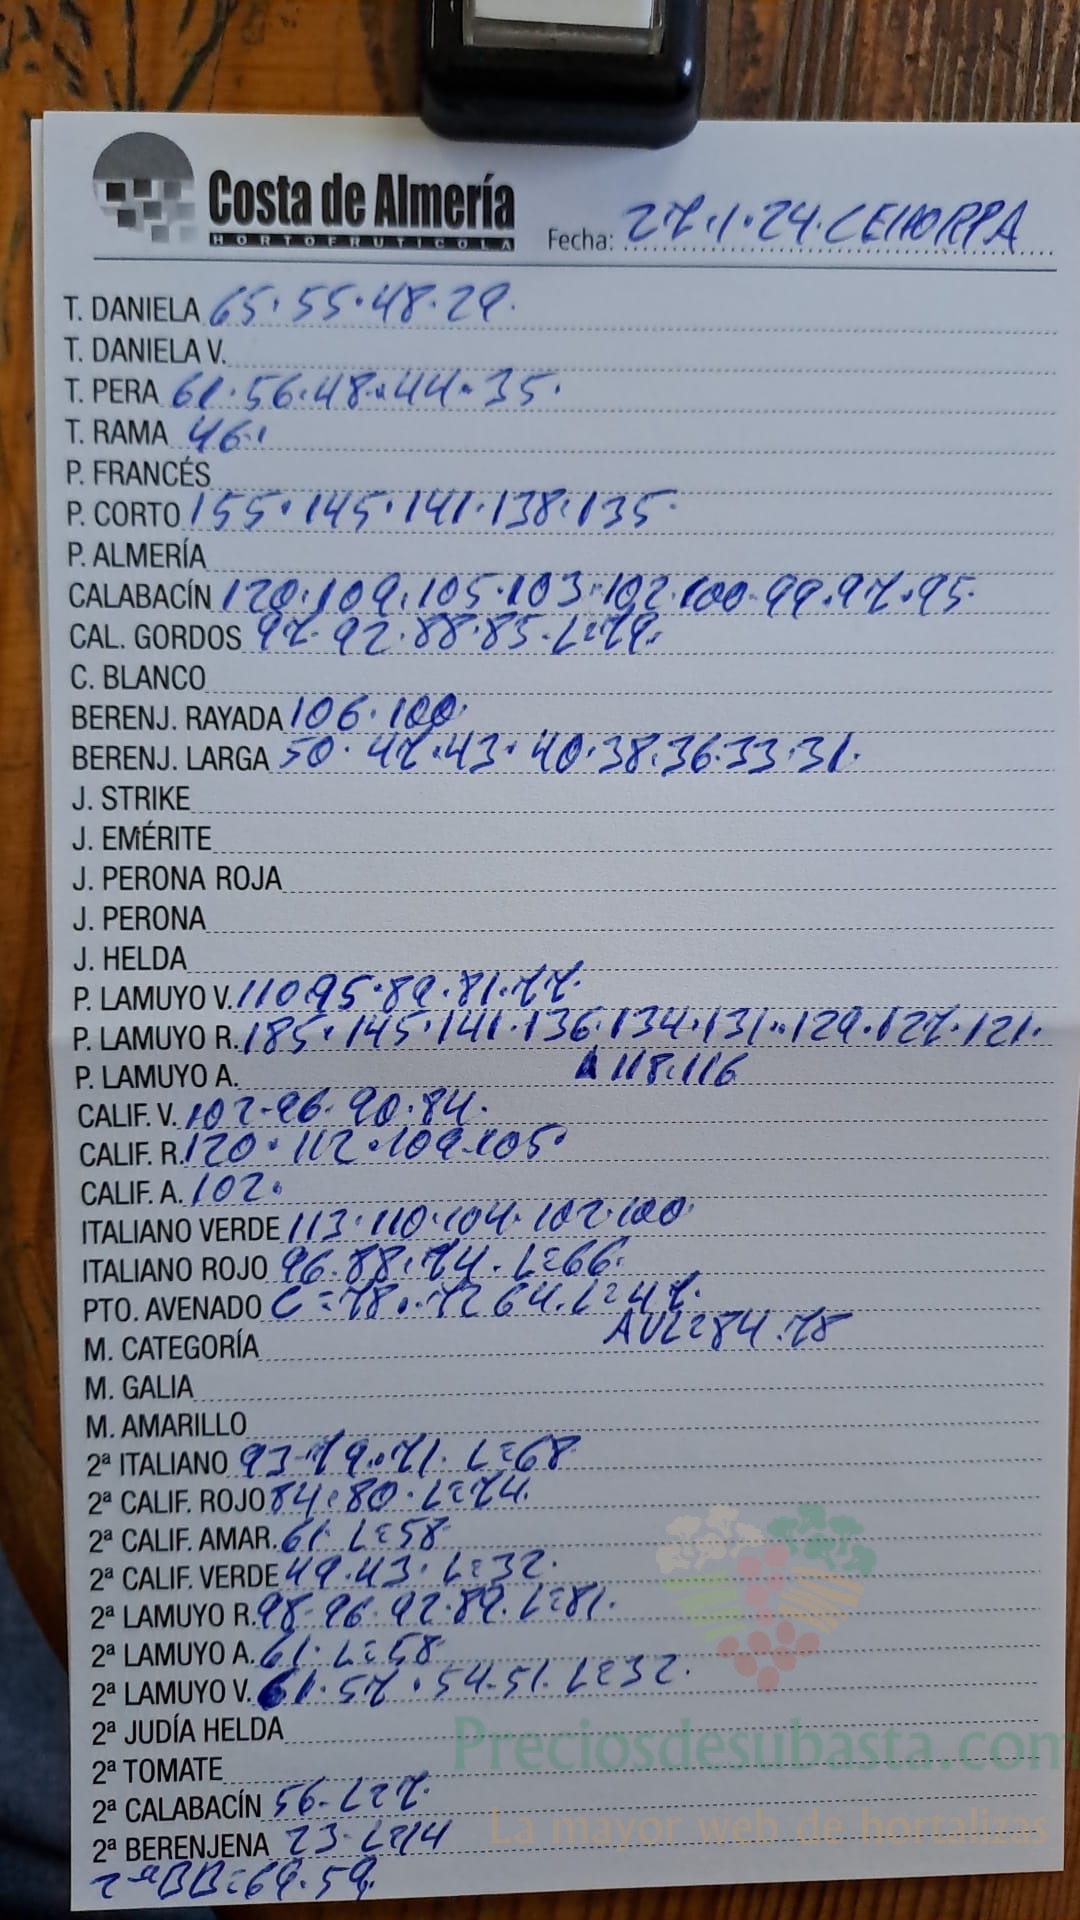 Costa de Almería
HORTOFRUTICOLA
Fecha: 27.1.24. CEHORPA
T. DANIELA 65.55.48.29.
T. DANIELA V.
T. PERA 61.56.48.44.35.
T. RAMA 46.
P. FRANCÉS
P. CORTO 155.145.141.138.135.
P. ALMERÍA
CALABACÍN 120.109.105.103.102.100.99.97.95.
CAL. GORDOS 97.92.88.85.L=79.
C. BLANCO
BERENJ. RAYADA 106.100.
BERENJ. LARGA 50.47.43.40.38.36.33.31.
J. STRIKE
J. EMÉRITE
J. PERONA ROJA
J. PERONA
J. HELDA
P. LAMUYO V. 110.95.89.81.77.
P. LAMUYO R. 185.145.141.136.134.131.129.127.121.
118.116
P. LAMUYO A.
CALIF. V. 102-96.90.84.
CALIF. R. 120.112.109.105.
CALIF. A. 102.
ITALIANO VERDE 113.110.104.102.100.
ITALIANO ROJO 96.88.74.L=66.
PTO. AVENADO C=78.72 64.L=47.
AVL=84.78
M. CATEGORÍA
M. GALIA
M. AMARILLO
2ª ITALIANO 93-79.71. L=68
2ª CALIF. ROJO 84.80.L=74.
2ª CALIF. AMAR. 61. L=58
2ª CALIF. VERDE 49.43. L=32.
2ª LAMUYO R. 98-96.92.89.L=81.
2ª LAMUYO A. 61. L=58
2ª LAMUYO V. 61.57.54.51.L=32.
2ª JUDÍA HELDA
2ª TOMATE
2ª CALABACÍN 56-L=7.
2ª BERENJENA 23-L=14
2ªBB=69.59.
Preciosdesubasta.com
La mayor web de hortalizas